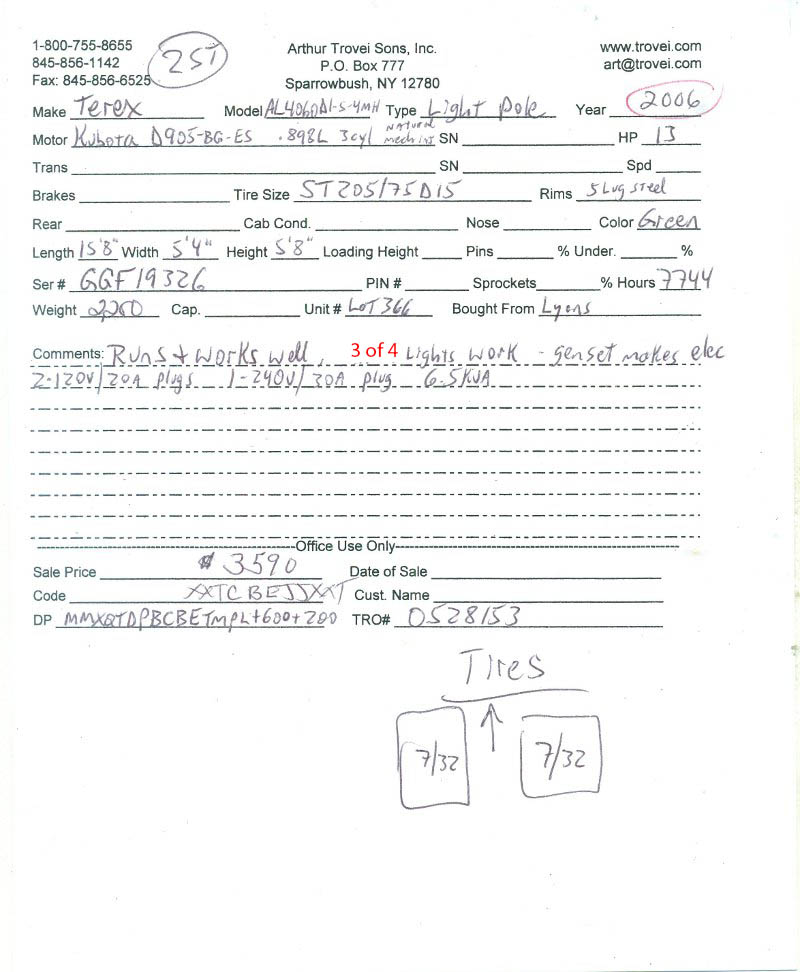 1-800-755-8655
845-856-1142
Fax: 845-856-6525
2ST
Arthur Trovei Sons, Inc.
P.O. Box 777
Sparrowbush, NY 12780
www.trovei.com
art@trovei.com
Make Terex Model AL4060D1-S-4MH Type Light Pole Year 2006
Motor Kubota D905-BG-ES .898L 3cyl Natural mech inj SN HP 13
Trans SN Spd
Brakes Tire Size ST205/75D15 Rims 5 Lug Steel
Rear Cab Cond. Nose Color Green
Length 15'8" Width 5'4" Height 5'8" Loading Height Pins % Under. %
Ser # GGF19326 PIN # Sprockets % Hours 7744
Weight Cap. Unit # LOT 366 Bought From Lyons
Comments: Runs + works well, 3 of 4 Lights work - genset makes elec
2-120V/20A plugs 1-240V/30A plug 6.5KVA
Office Use Only
Sale Price $3590 Date of Sale
Code XXTCBEJJXXT Cust. Name
DP MMXQTDPBCBETMPL+600+200 TRO# 0528153
Tires
7/32 7/32